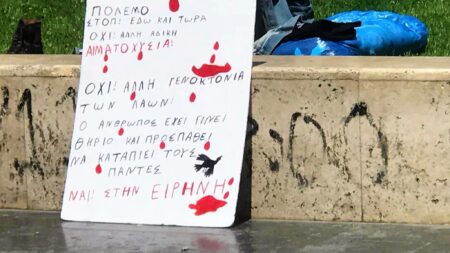 ΠΟΛΕΜΟ
ΣΤΟΠ! ΕΔΩ ΚΑΙ ΤΩΡΑ
ΟΧΙ! ΑΛΛΗ ΑΔΙΚΗ
ΑΙΜΑΤΟΧΥΣΙΑ!
ΟΧΙ! ΑΛΛΗ ΓΕΝΟΚΤΟΝΙΑ
ΤΩΝ ΛΑΩΝ!
Ο ΑΝΘΡΩΠΟΣ ΕΧΕΙ ΓΙΝΕΙ
ΘΗΡΙΟ ΚΑΙ ΠΡΟΣΠΑΘΕΙ
ΝΑ ΚΑΤΑΠΙΕΙ ΤΟΥΣ
ΠΑΝΤΕΣ
ΝΑΙ! ΣΤΗΝ ΕΙΡΗΝΗ!